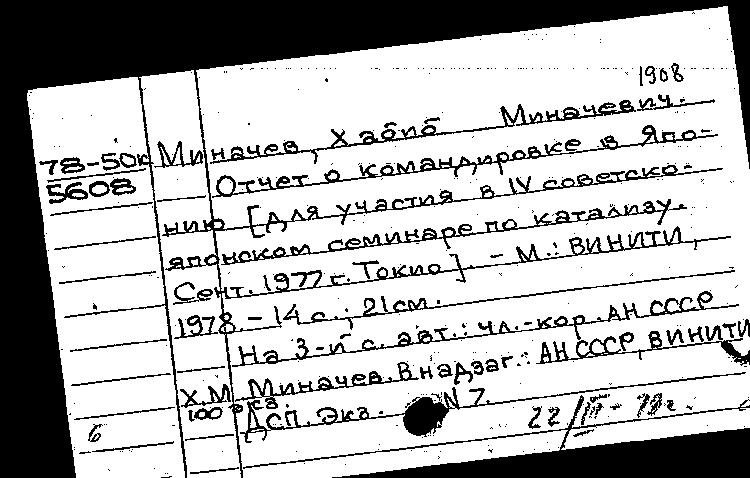 1908
78-50к Миначев, Хабиб Миначевич.
5608 Отчет о командировке в Япо-
нию [для участия в IV советско-
японском семинаре по катализу.
Сент. 1977 г. Токио]. - М.: ВИНИТИ,
1978. - 14 с.; 21 см.
На 3-й с. авт.: чл.-кор. АН СССР
Х.М. Миначев. В надзаг.: АН СССР, ВИНИТИ
100 экз.
ДСП. Экз. N 7.
6 22/III-78г.